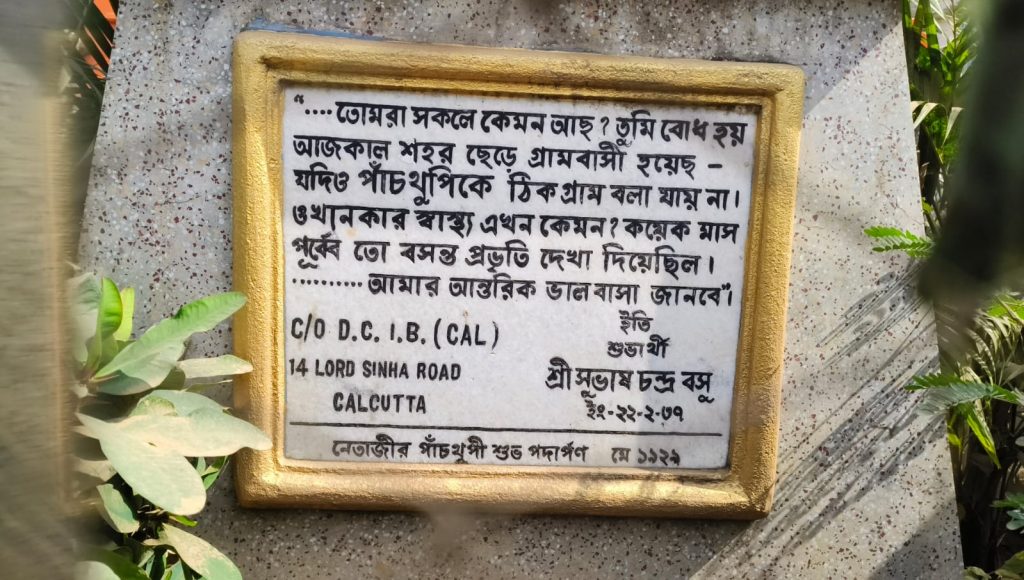 "....তোমরা সকলে কেমন আছ? তুমি বোধ হয়
আজকাল শহর ছেড়ে গ্রামবাসী হয়েছ –
যদিও পাঁচথুপিকে ঠিক গ্রাম বলা যায় না।
ওখানকার স্বাস্থ্য এখন কেমন? কয়েক মাস
পূর্ব্বে তো বসন্ত প্রভৃতি দেখা দিয়েছিল।
.......... আমার আন্তরিক ভালবাসা জানবে"।
ইতি
শুভার্থী
শ্রী সুভাষ চন্দ্র বসু
ইং-২২-২-৩৭
C/O D.C. I.B. (CAL)
14 LORD SINHA ROAD
CALCUTTA
নেতাজীর পাঁচথুপী শুভ পদার্পণ মে ১৯২৯